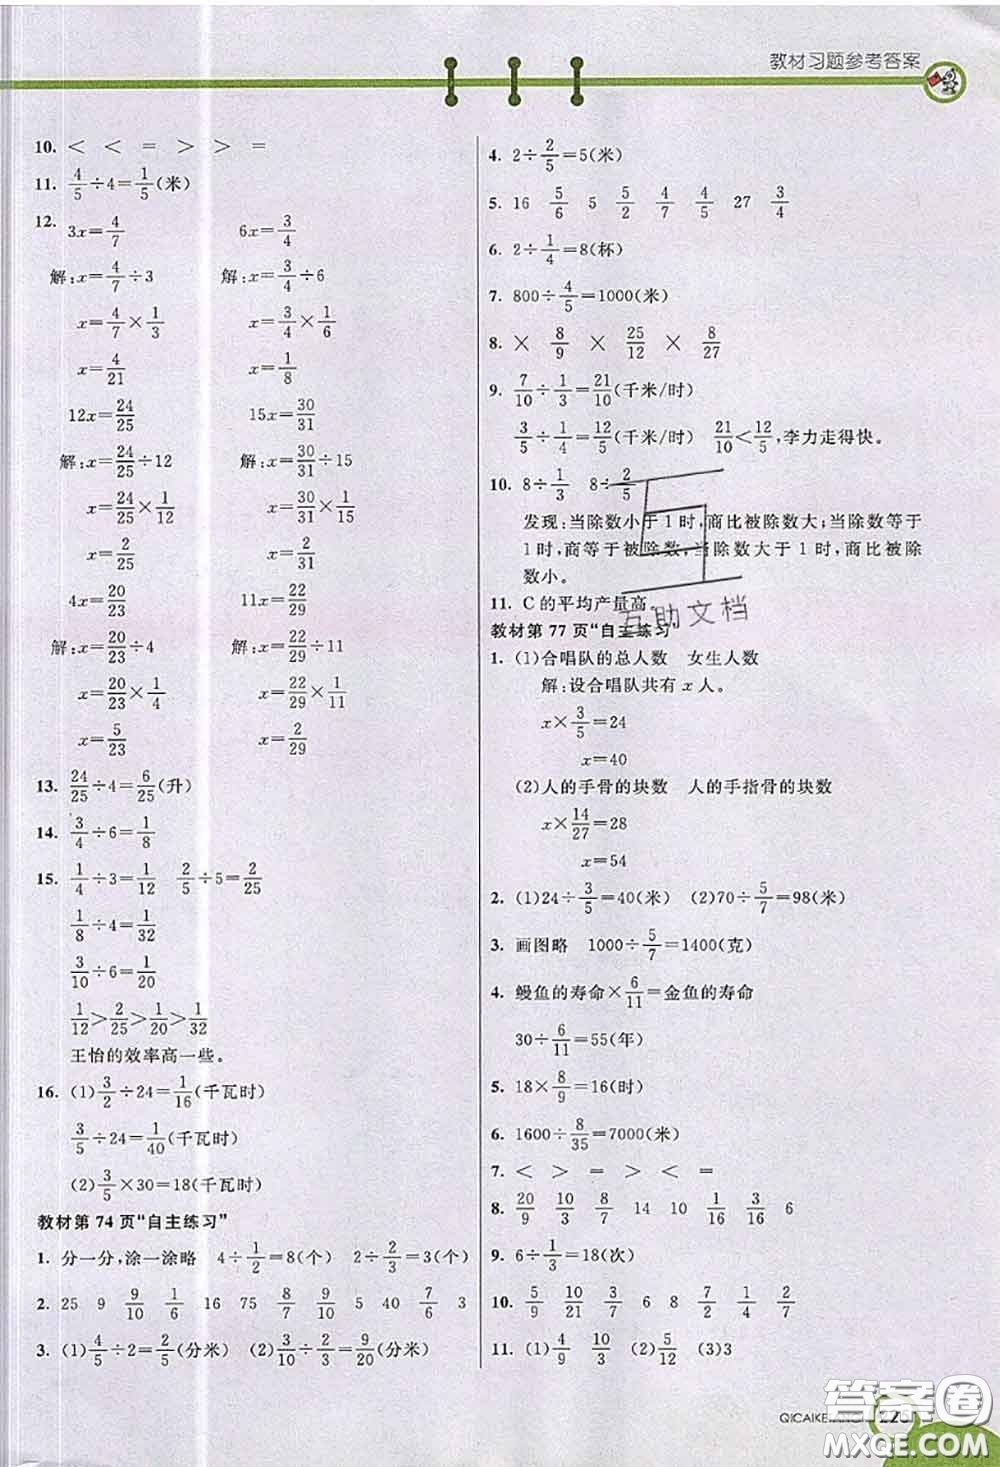 教材习题参考答案
10. < < = > > =
11. 4/5÷4=1/5(米)
12. 3x=4/7 6x=3/4
解:x=4/7÷3 解:x=3/4÷6
x=4/7×1/3 x=3/4×1/6
x=4/21 x=1/8
12x=24/25 15x=30/31
解:x=24/25÷12 解:x=30/31÷15
x=24/25×1/12 x=30/31×1/15
x=2/25 x=2/31
4x=20/23 11x=22/29
解:x=20/23÷4 解:x=22/29÷11
x=20/23×1/4 x=22/29×1/11
x=5/23 x=2/29
13. 24/25÷4=6/25(升)
14. 3/4÷6=1/8
15. 1/4÷3=1/12 2/5÷5=2/25
1/8÷4=1/32
3/10÷6=1/20
1/12>2/25>1/20>1/32
王怡的效率高一些。
16. (1)3/2÷24=1/16(千瓦时)
3/5÷24=1/40(千瓦时)
(2)3/5×30=18(千瓦时)
教材第 74 页“自主练习”
1. 分一分,涂一涂略 4÷1/2=8(个) 2÷2/3=3(个)
2. 25 9 9/10 1/6 16 75 8/7 9/10 5 40 7/6 3
3. (1)4/5÷2=2/5(分米) (2)3/10÷2/3=9/20(分米)
4. 2÷2/5=5(米)
5. 16 5/6 5 5/2 4/7 4/5 27 3/4
6. 2÷1/4=8(杯)
7. 800÷4/5=1000(米)
8. × 8/9 × 25/12 × 8/27
9. 7/10÷1/3=21/10(千米/时)
3/5÷1/4=12/5(千米/时) 21/10<12/5,李力走得快。
10. 8÷1/3 8÷2/5
发现:当除数小于 1 时,商比被除数大;当除数等于
1时,商等于被除数;当除数大于 1 时,商比被除
数小。
11. C 的平均产量高。
互助文档
教材第 77 页“自主练习”
1. (1)合唱队的总人数 女生人数
解:设合唱队共有 x 人。
x×3/5=24
x=40
(2)人的手骨的块数 人的手指骨的块数
x×14/27=28
x=54
2. (1)24÷3/5=40(米) (2)70÷5/7=98(米)
3. 画图略 1000÷5/7=1400(克)
4. 鳗鱼的寿命×6/11=金鱼的寿命
30÷6/11=55(年)
5. 18×8/9=16(时)
6. 1600÷8/35=7000(米)
7. < > = > < =
8. 20/9 10/3 8/7 14 10 1/16 3/16 6
9. 6÷1/3=18(次)
10. 5/9 10/21 3/7 6 8 7/2 1/4 2/7
11. (1)4/9 10/3 (2)5/12 (3)3
答案圈
MXQE.COM